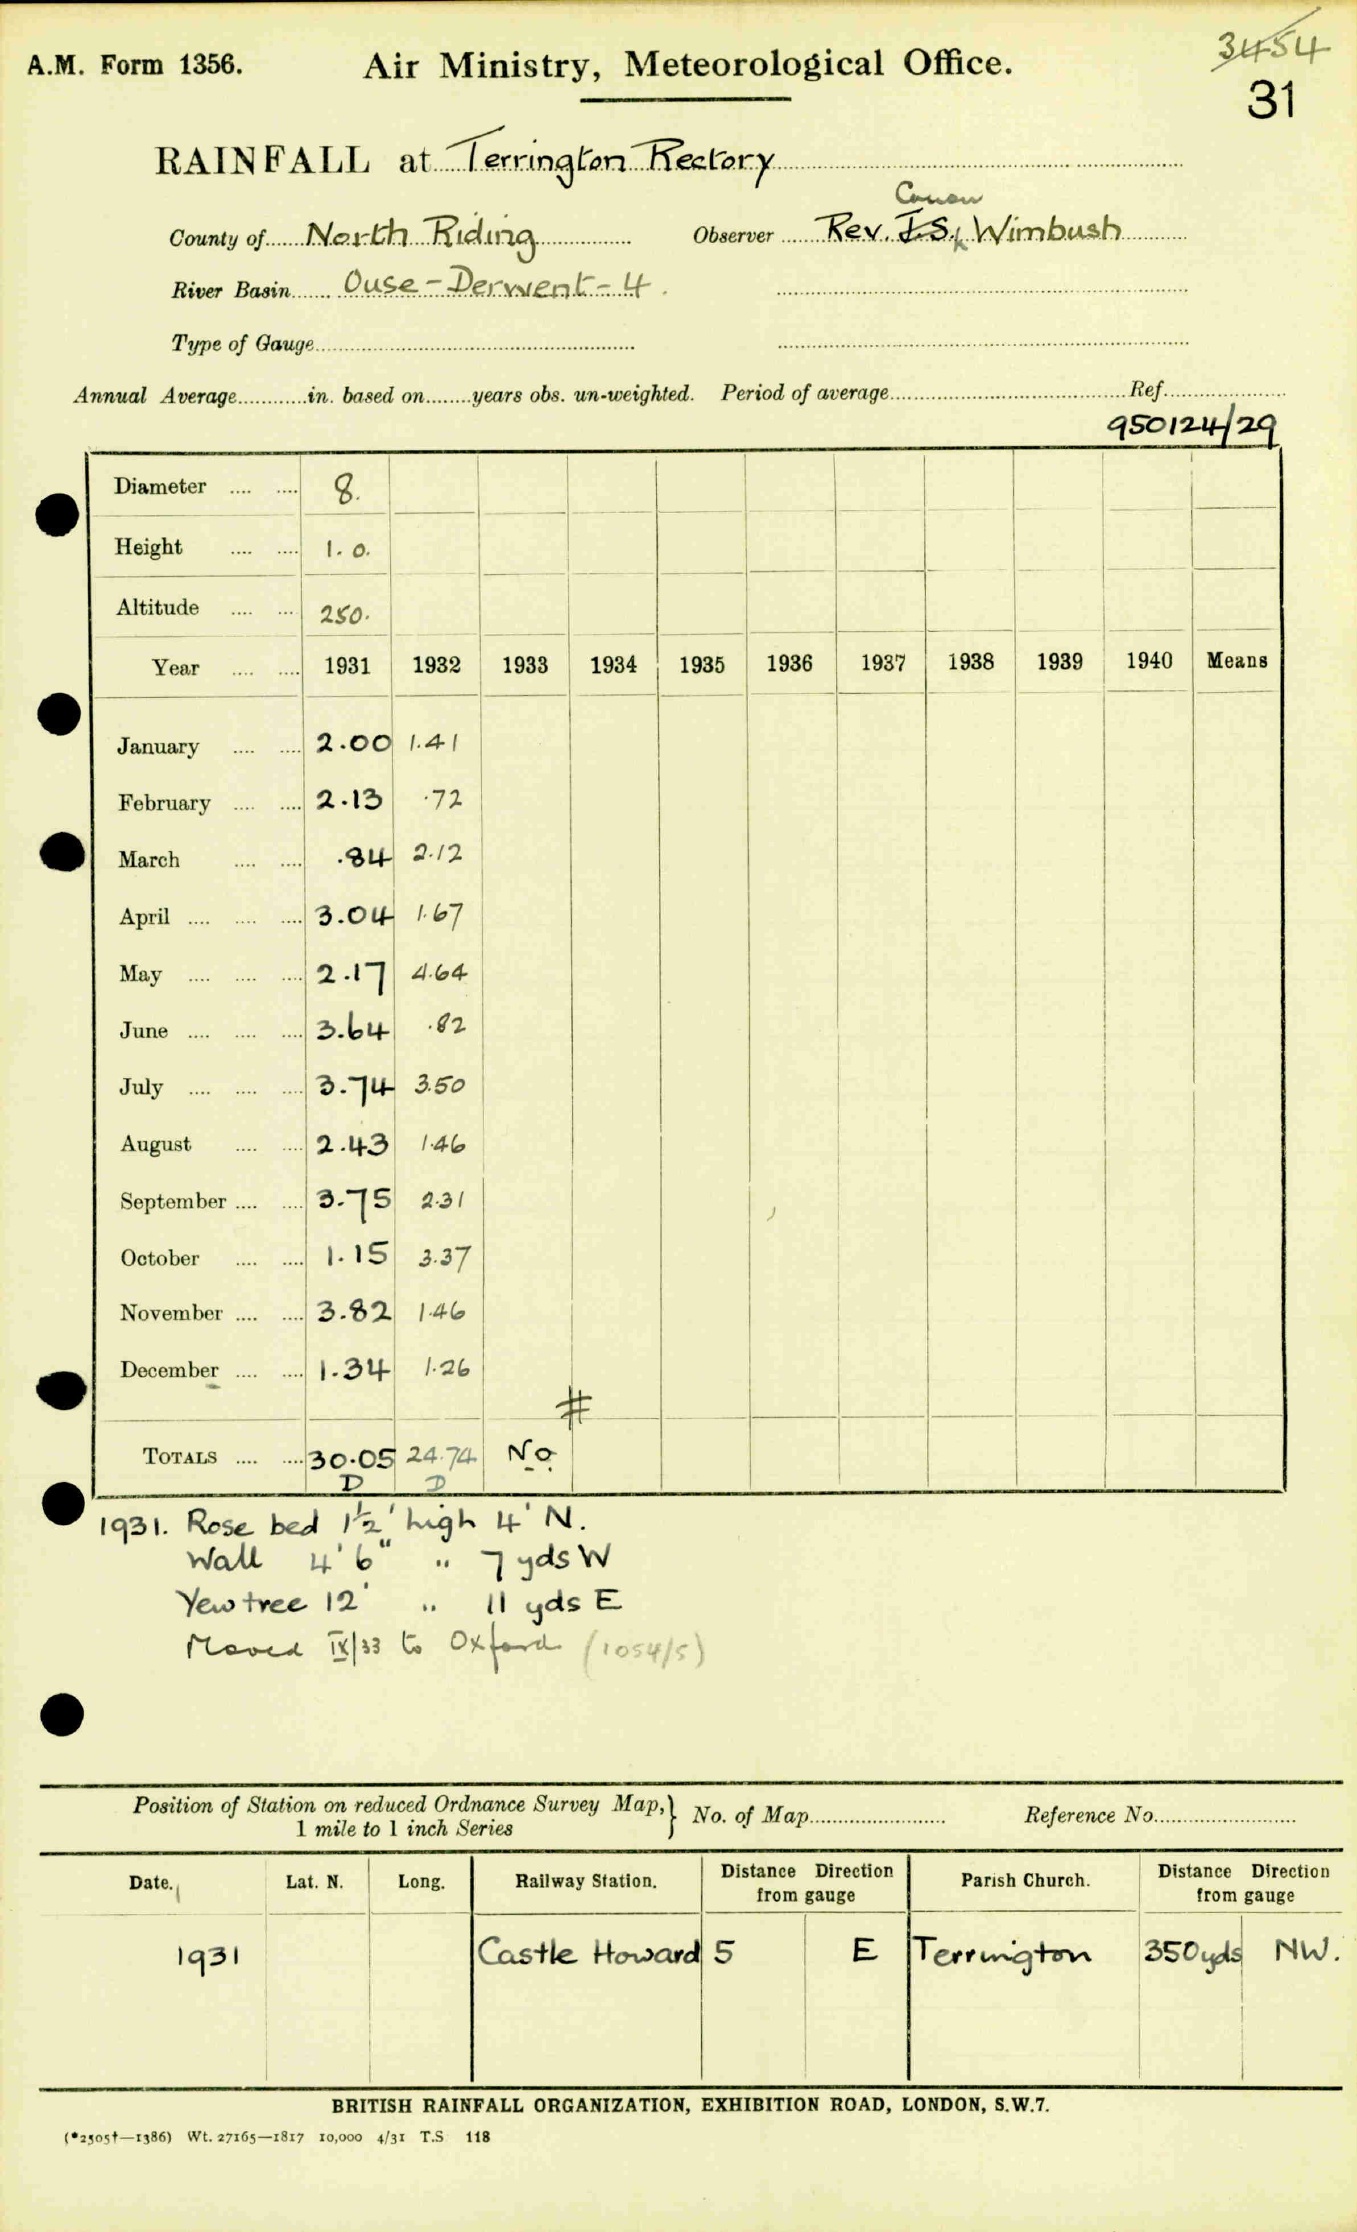 3454
A.M. Form 1356. Air Ministry, Meteorological Office.
31
RAINFALL at Terrington Rectory
Canon
County of North Riding Observer Rev. J.S. Wimbush
River Basin Ouse - Derwent - 4.
Type of Gauge
Annual Average in. based on years obs. un-weighted. Period of average Ref.
950124/29
Diameter 8.
Height 1. 0.
Altitude 250.
Year 1931 1932 1933 1934 1935 1936 1937 1938 1939 1940 Means
January 2.00 1.41
February 2.13 .72
March .84 2.12
April 3.04 1.67
May 2.17 4.64
June 3.64 .82
July 3.74 3.50
August 2.43 1.46
September 3.75 2.31
October 1.15 3.37
November 3.82 1.46
December 1.34 1.26
#
TOTALS 30.05 24.74 No
D D
1931. Rose bed 1½' high 4' N.
Wall 4' 6" " 7 yds W
Yew tree 12' " 11 yds E
Moved IX/33 to Oxford (1054/5)
Position of Station on reduced Ordnance Survey Map, } No. of Map Reference No.
1 mile to 1 inch Series
Date. Lat. N. Long. Railway Station. Distance Direction from gauge Parish Church. Distance Direction from gauge
1931 Castle Howard 5 E Terrington 350 yds NW.
BRITISH RAINFALL ORGANIZATION, EXHIBITION ROAD, LONDON, S.W.7.
(*2505†—1386) Wt. 27165—1817 10,000 4/31 T.S 118